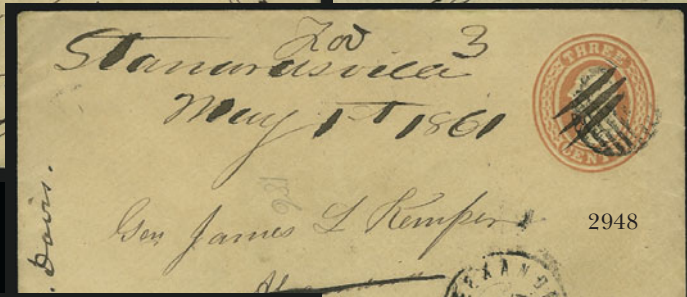 3
Stanardsville
May 1st 1861
THREE
CENTS
Gen James L Kemper
2948
Davis.